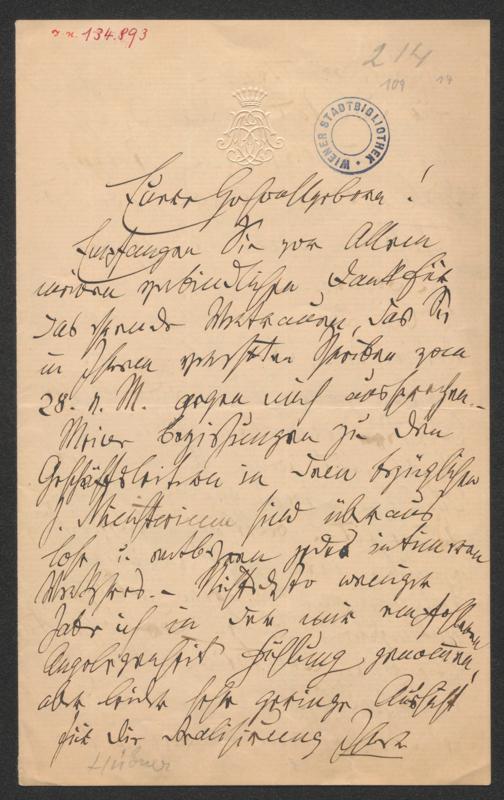 J. N. 134.893
214
109
WIENER STADTBIBLIOTHEK
Euere Hochwohlgeboren!
Empfangen Sie vor Allem
meinen verbindlichen Dank für
das ehrende Vertrauen, das Sie
in Ihrem werthen Schreiben vom
28. v. M. gegen mich aussprechen.–
Meine Beziehungen zu den
Geschäftsleitern in dem bezüglichen
h. Ministerium sind überaus
lose u. entbehren jedes intimeren
Verkehres.– Nichtsdesto weniger
habe ich in der mir empfohlenen
Angelegenheit Fühlung genommen,
aber leider sehr geringe Aussicht
für die Realisirung Ihrer
Hübner